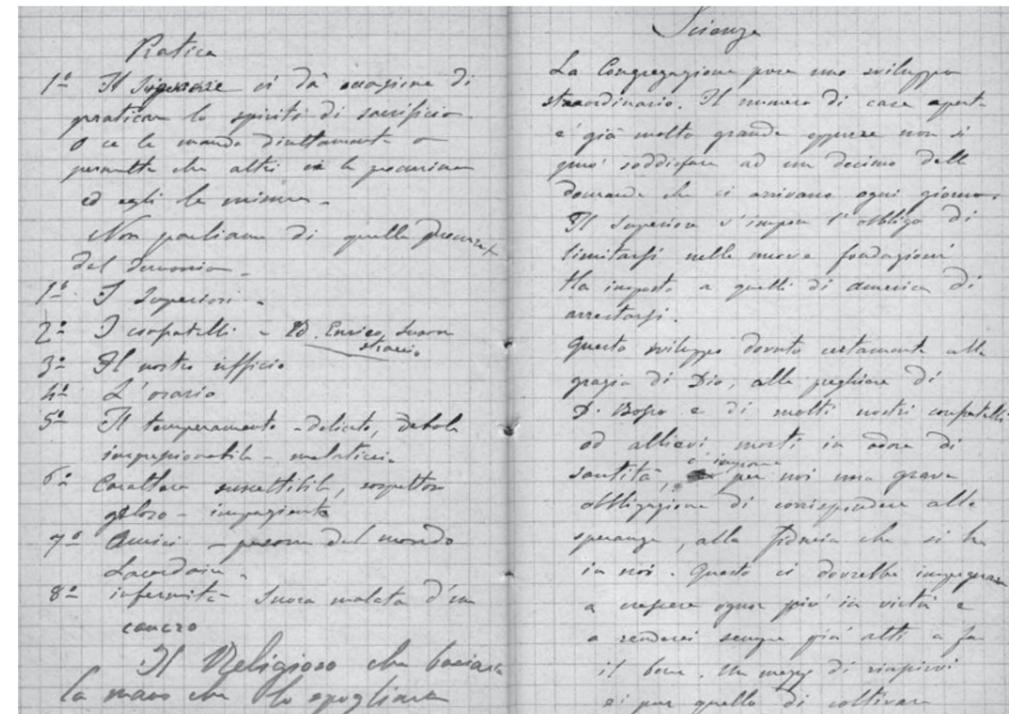 Pratica
1º Il Signore ci dà occasione di
praticare lo spirito di sacrificio.
O ce le manda direttamente o
permette che altri ce le procurino
ed egli le misura -
Non parliamo di quelle
del demonio -
1º I Superiori -
2º I confratelli - Enrico, Suora
3º Il nostro ufficio
4º L'orario
5º Il temperamento - delicato, debole
impressionabile - malaticcio
6º Carattere suscettibile, sospettoso
geloso - impaziente
7º Amici - persone del mondo
Lacordaire -
8º infermità - Suora malata d'un
cancro
Il Religioso che baciava
la mano che lo spogliava
Scienza
La Congregazione prese uno sviluppo
straordinario. Il numero di case aperte
è già molto grande eppure non si
può soddisfare ad un decimo delle
domande che ci arrivano ogni giorno.
Il Superiore s'impone l'obbligo di
limitarsi nelle nuove fondazioni
Ha imposto a quelli di america di
arrestarsi.
Questo sviluppo dovuto certamente alla
grazia di Dio, alle preghiere di
D. Bosco e di molti nostri confratelli
od allievi morti in odore di
santità, impone per noi una grave
obbligazione di corrispondere alle
speranze, alla fiducia che si ha
in noi. Questo ci dovrebbe impegnare
a crescere ognor più in virtù e
a renderci sempre più atti a far
il bene. Un mezzo di riuscirvi
è pur quello di coltivare